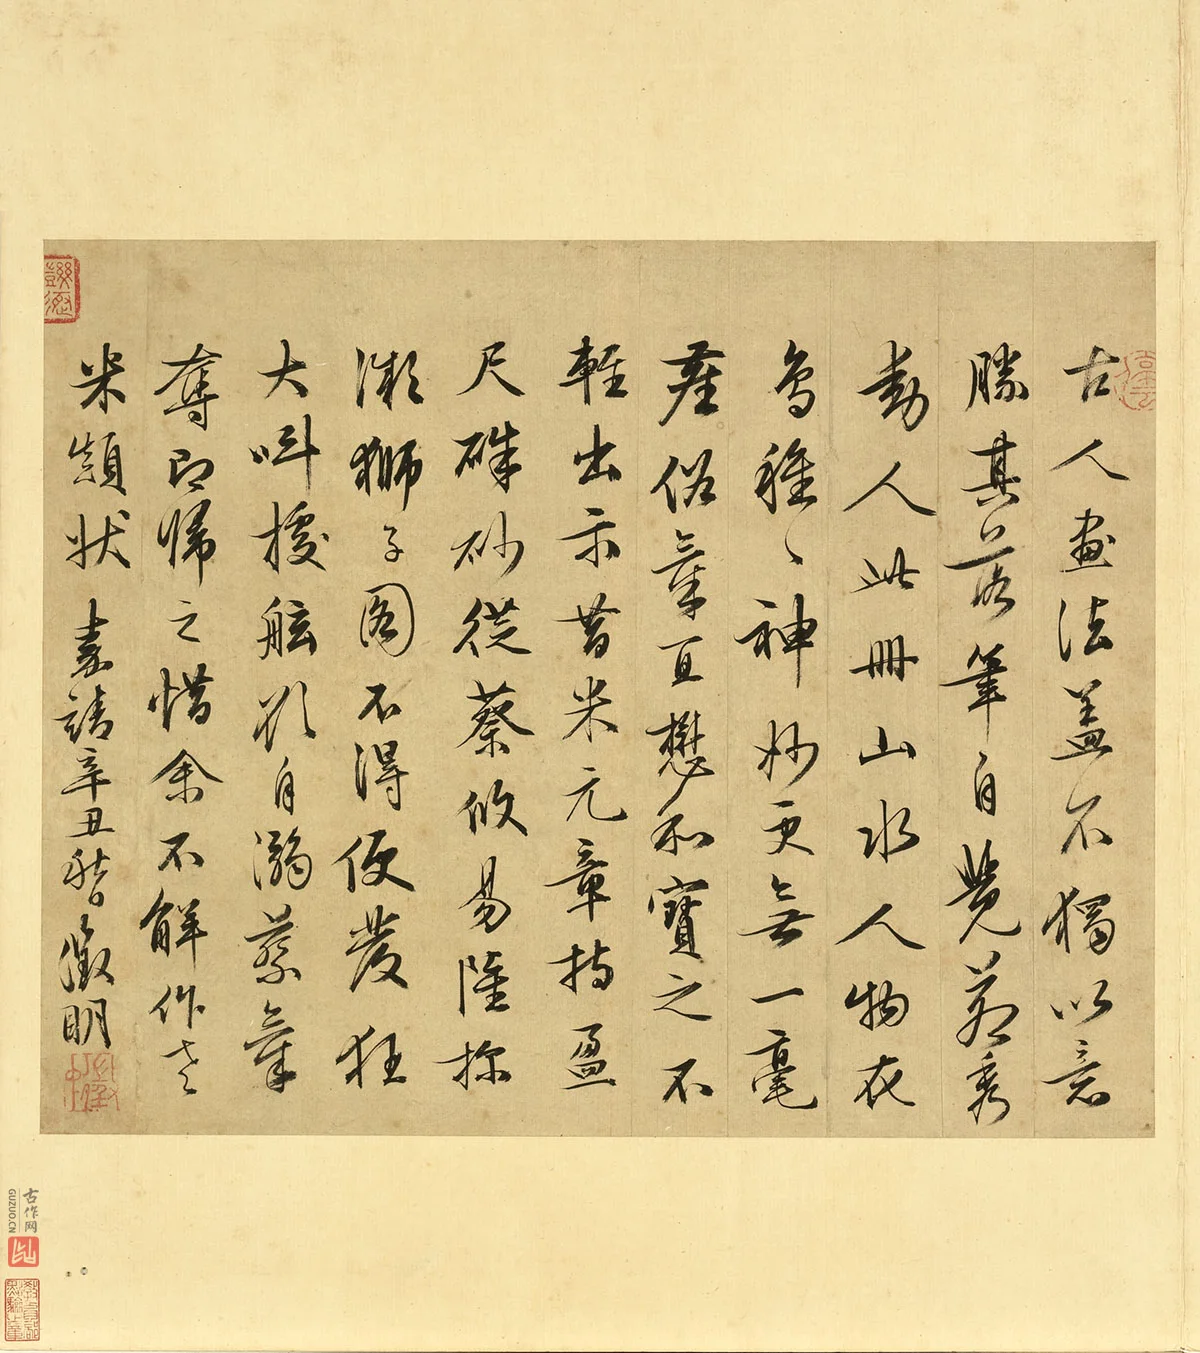 古人畫法蓋不獨以意
勝其落筆自覺蒼秀
動人此冊山水人物花
鳥種〻神妙更無一毫
塵俗氣宜懋和寶之不
輕出示昔米元章持盈
尺硃砂從蔡攸易陸探
微獅子圖不得便發狂
大叫據舷欲自溺蔡氣
奪即歸之惜余不解作老
米顛狀 嘉靖辛丑秋日徵明
古作网
GUZUO.CN